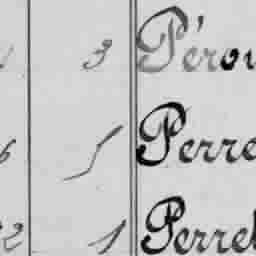 3 Pérou
6 5 Perre
22 1 Perret